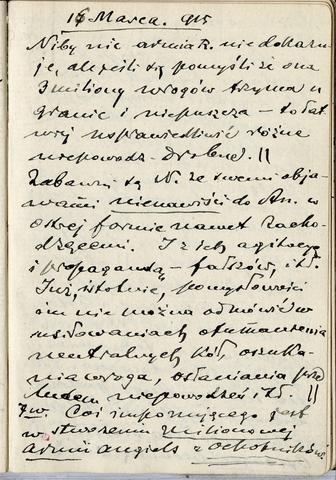 16 Marca. 915
Niby nic armia R. nie dokazu-
je, ale jeśli się pomyśli że ona
3 miliony wrogów trzyma w
granic i niepuszcza – to łat
wiej usprawiedliwić różne
niepowodz. drobne. ||
Zabawni są N. ze swemi obja-
wami nienawiści do An. w
ostrej formie nawet zacho-
dzącemi. I z ich agitacją
i propagandą – fałszów, itd.
Już, istotnie, pomysłowości
im nie można odmówić w
usiłowaniach otumanienia
neutralnych kół, oszuka-
nia wroga, osłaniania przed
ludem niepowodzeń itd. ||
Coś imponującego jest
w stworzeniu milionowej
armii angiels z ochotników